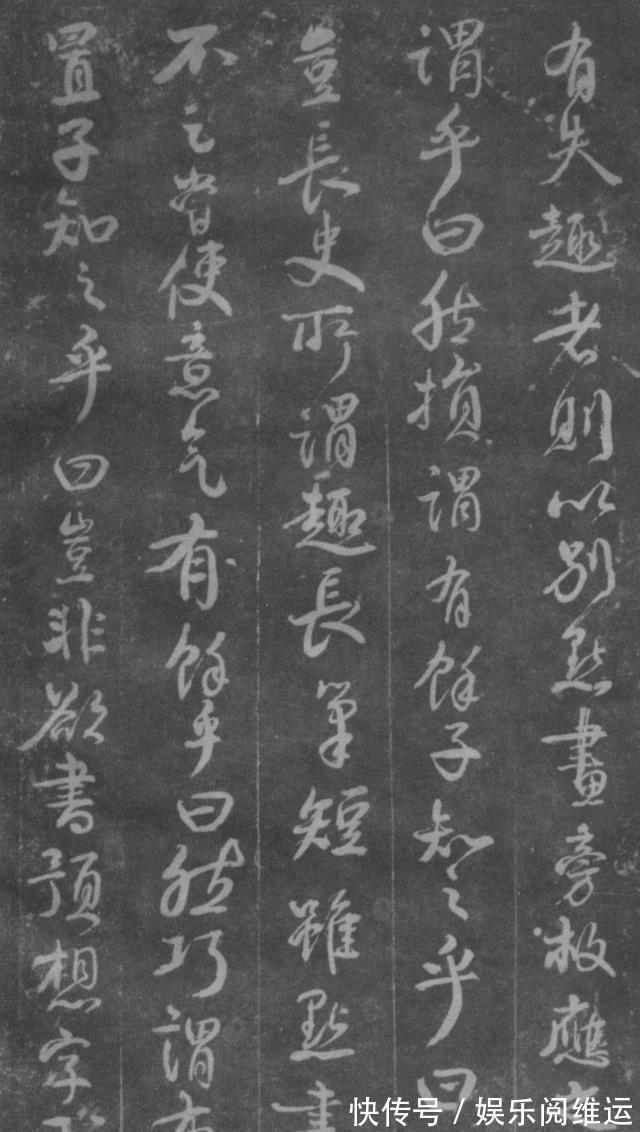 有失趣者則以別點畫旁救應之
謂乎曰然損謂有餘子知之乎曰
豈長史所謂趣長筆短雖點畫
不足常使意气有餘乎曰然巧謂布
置子知之乎曰豈非欲書預想字形
快传号/娱乐阅维运